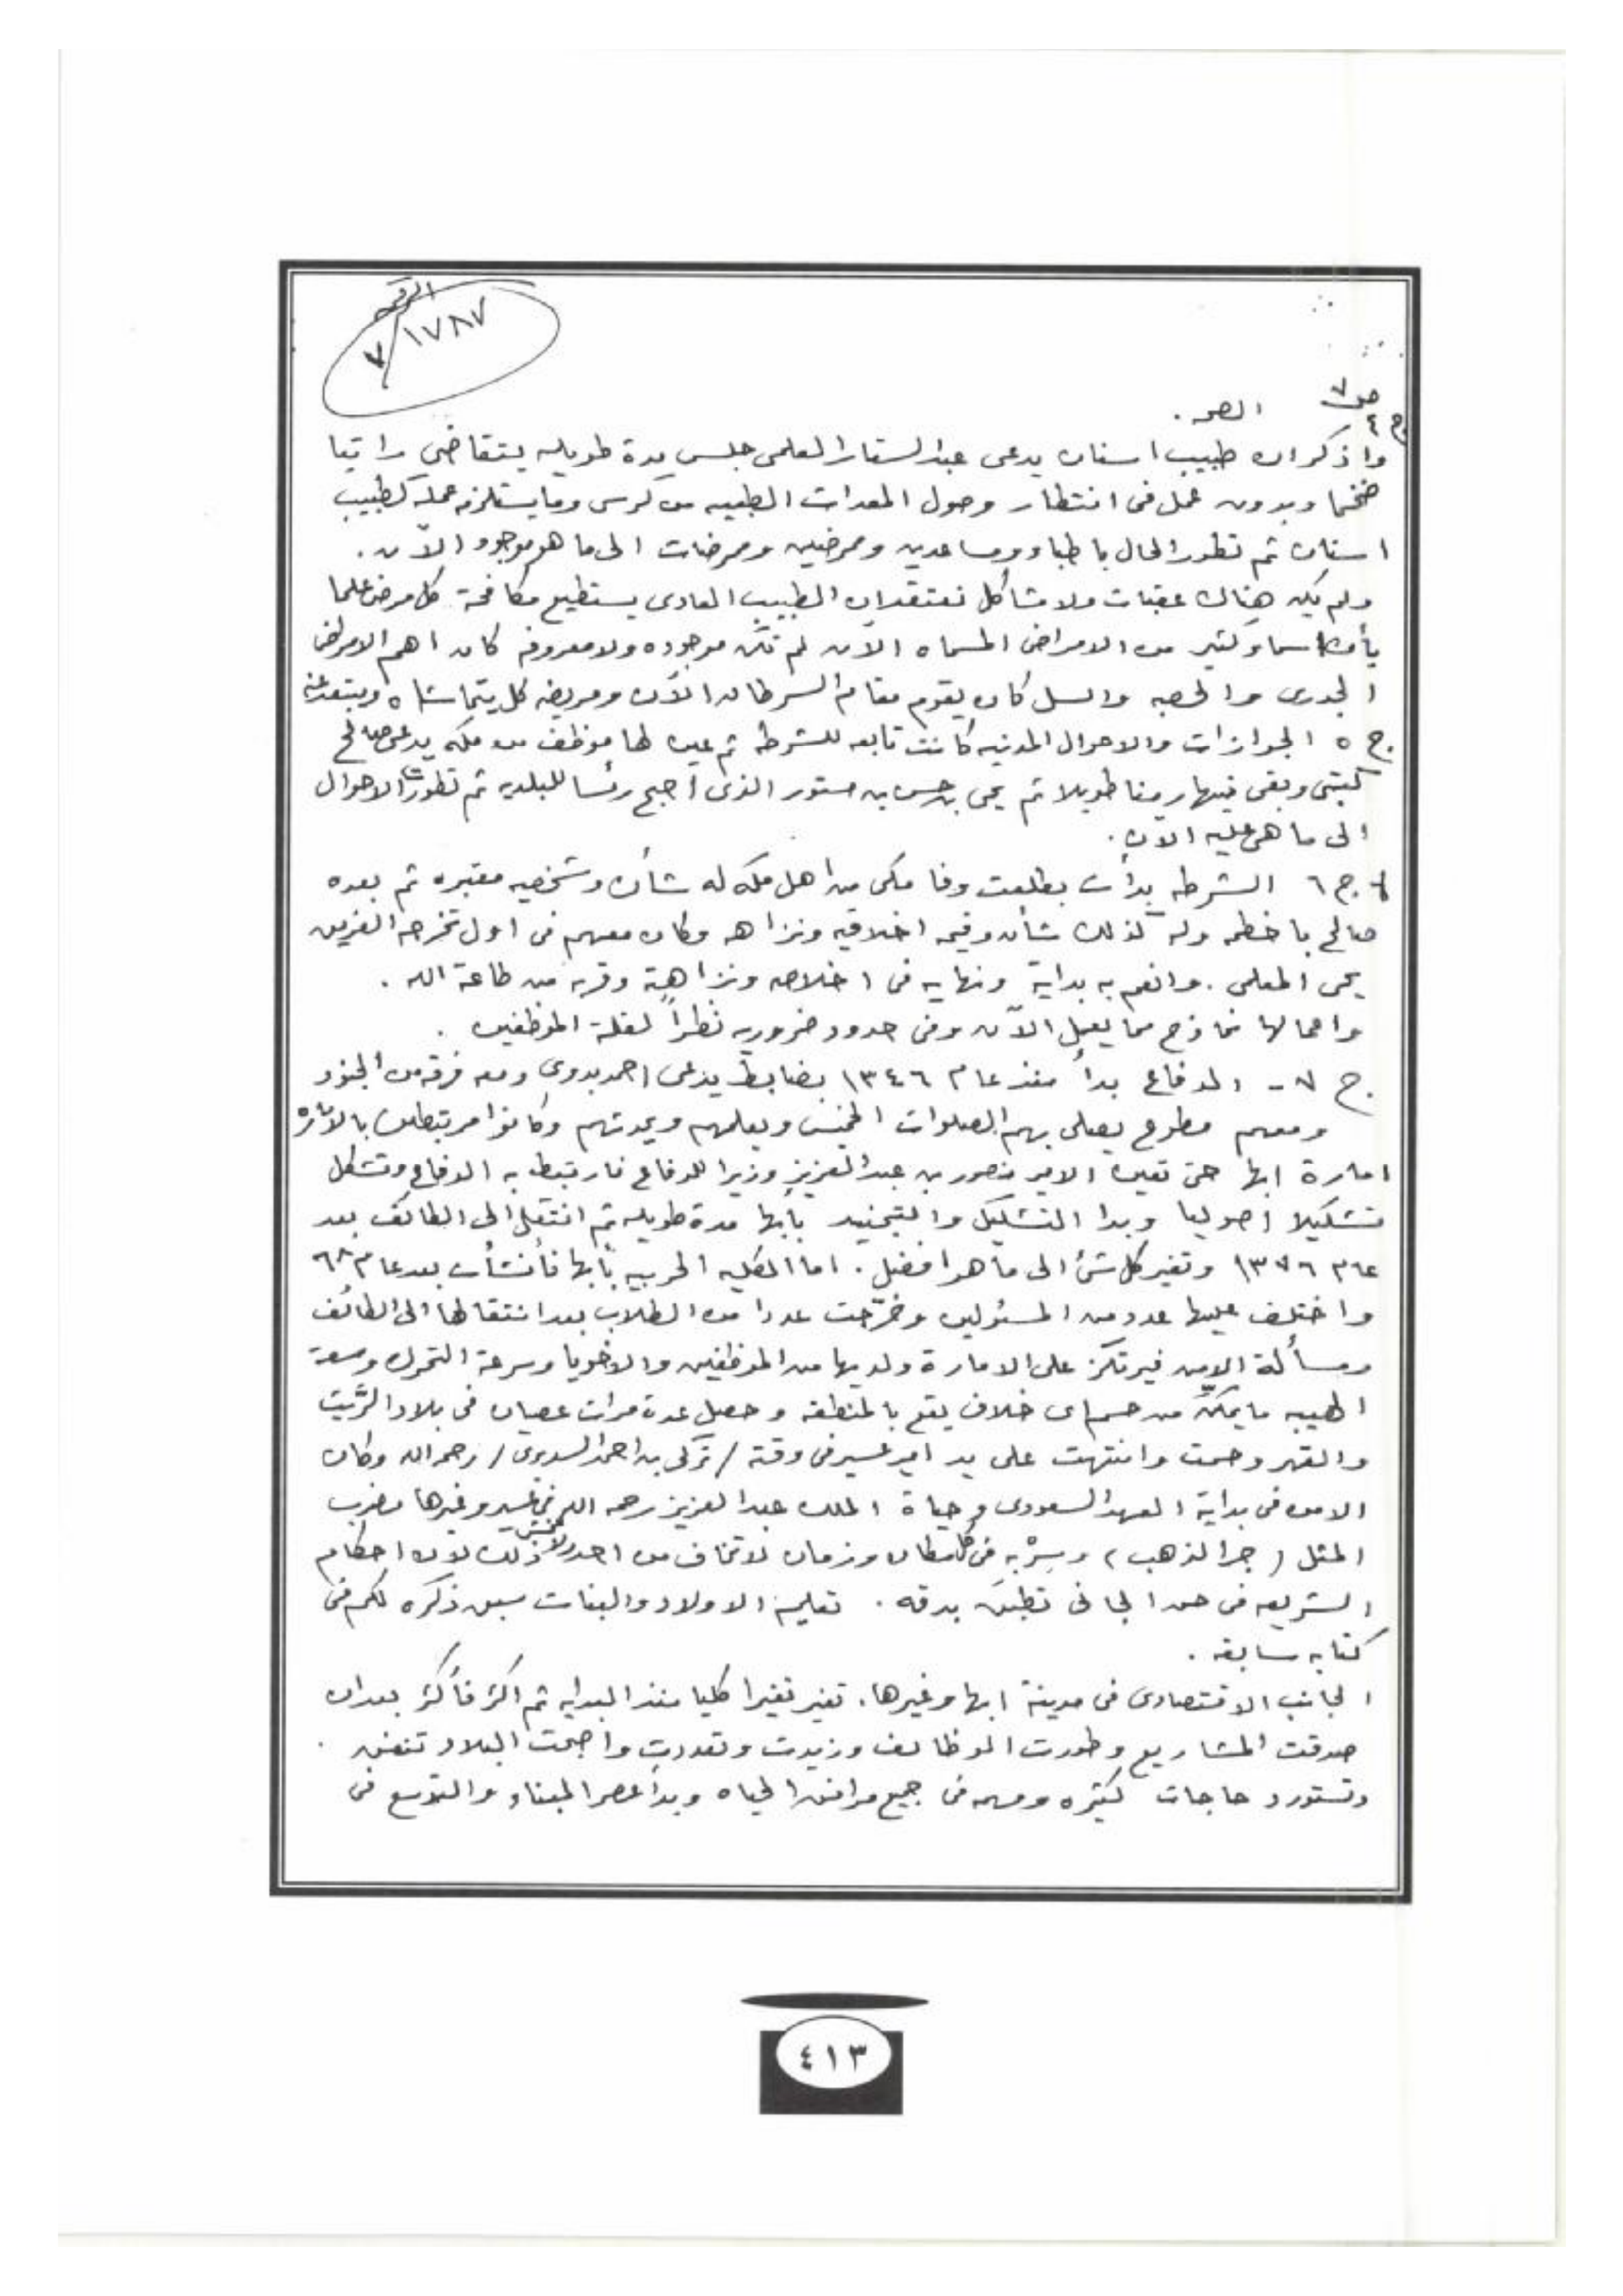 الرقم
٧/١٧٨٧
ص ٧
ج ٤ الصحه .
واذكر ان طبيب اسنان يدعى عبدالستار المعلمي جلس مدة طويله يتقاضى راتبا
ضخما وبدون عمل في انتظار وصول المعدات الطبيه من كرسي وما يستلزمه عمله كطبيب
اسنان ثم تطور الحال باطباء ومساعدين وممرضين وممرضات الى ما هو موجود الآن .
ولم يكن هناك عقبات ولا مشاكل نعتقد ان الطبيب العادى يستطيع مكافحة كل مرض علما
بأن اسماء وكثير من الامراض المسماه الآن لم تكن موجوده ولا معروفه كان اهم الامراض
الجدرى والحصبه والسل كان يقوم مقام السرطان الآن ومريضه كل يتحاشاه ويبتعد عنه
ج ٥ الجوازات والاحوال المدنيه كانت تابعه للشرطه ثم عين لها موظف من مكه يدعى صالح
كتبي وبقى فيها زمنا طويلا ثم يحى بن حسن بن مستور الذى اصبح رئسا للبلديه ثم تطورت الاحوال
الى ما هى عليه الآن .
ج ٦ الشرطه بدأت بطلعت وفا مكى من اهل مكه له شأن وشخصيه معتبره ثم بعده
صالح باخطمه وله كذلك شأن وقيمه اخلاقيه ونزاهه وكان معهم في اول تخرجه الفريق
يحى المعلمى . وانعم به بداية ونهايه في اخلاصه ونزاهة وقربه من طاعة الله .
واعمالها نماذج مما يعمل الآن وفى حدود ضروريه نظراً لقلة الموظفين .
ج ٧ - الدفاع بدأ منذ عام ١٣٤٦ بضابط يدعى احمد بدوى ومعه فرقه من الجنود
ومعهم مطوع يصلى بهم الصلوات الخمس ويعلمهم ويحدثهم وكانوا مرتبطين بالاماره
امارة ابها حتى تعين الامير منصور بن عبدالعزيز وزيرا للدفاع فارتبط به الدفاع وتشكل
تشكيلا اصوليا وبدا التشكيل والتجنيد بأبها مدة طويله ثم انتقل الى الطائف بعد
عام ١٣٧٦ وتغير كل شئ الى ما هو افضل . اما الكليه الحربيه بأبها فأنشأت بعد عام ٦٨
واختلف عليها عدد من المسئولين وخرّجت عددا من الطلاب بعد انتقالها الى الطائف
ومسألة الامن فيرتكز على الامارة ولديها من الموظفين والاخويا وسرعة التحرك وسعة
الهيبه ما يمكنّ من حسم اى خلاف يقع بالمنطقه وحصل عدة مرات عصيان في بلاد الرّيث
والقهر وحسمت وانتهت على يد امير عسير في وقتة / تركى بن احمد السديرى / رحمه الله وكان
الامن في بداية العهد السعودى وحياة الملك عبدالعزيز رحمه الله في عسير وغيرها مضرب
المثل ( جر الذهب ) وسِرْ به في كل مكان وزمان لا تخاف من احد ولا تخشى ذلك لان احكام
الشريعه في حق الجانى تطبق بدقه . تعليم الاولاد والبنات سبق ذكره لكم في
كتابه سابقه .
الجانب الاقتصادى في مدينة ابها وغيرها . تغير تغيرا كليا منذ البدايه ثم اكثر فأكثر بعد ان
صدقت المشاريع وطورت الوظائف وزيدت وتعددت واصبحت البلاد تنفق .
وتستورد حاجات كثيره ومهمه في جميع مرافق الحياه وبدأ عصر البناء والتوسع في
٤١٣